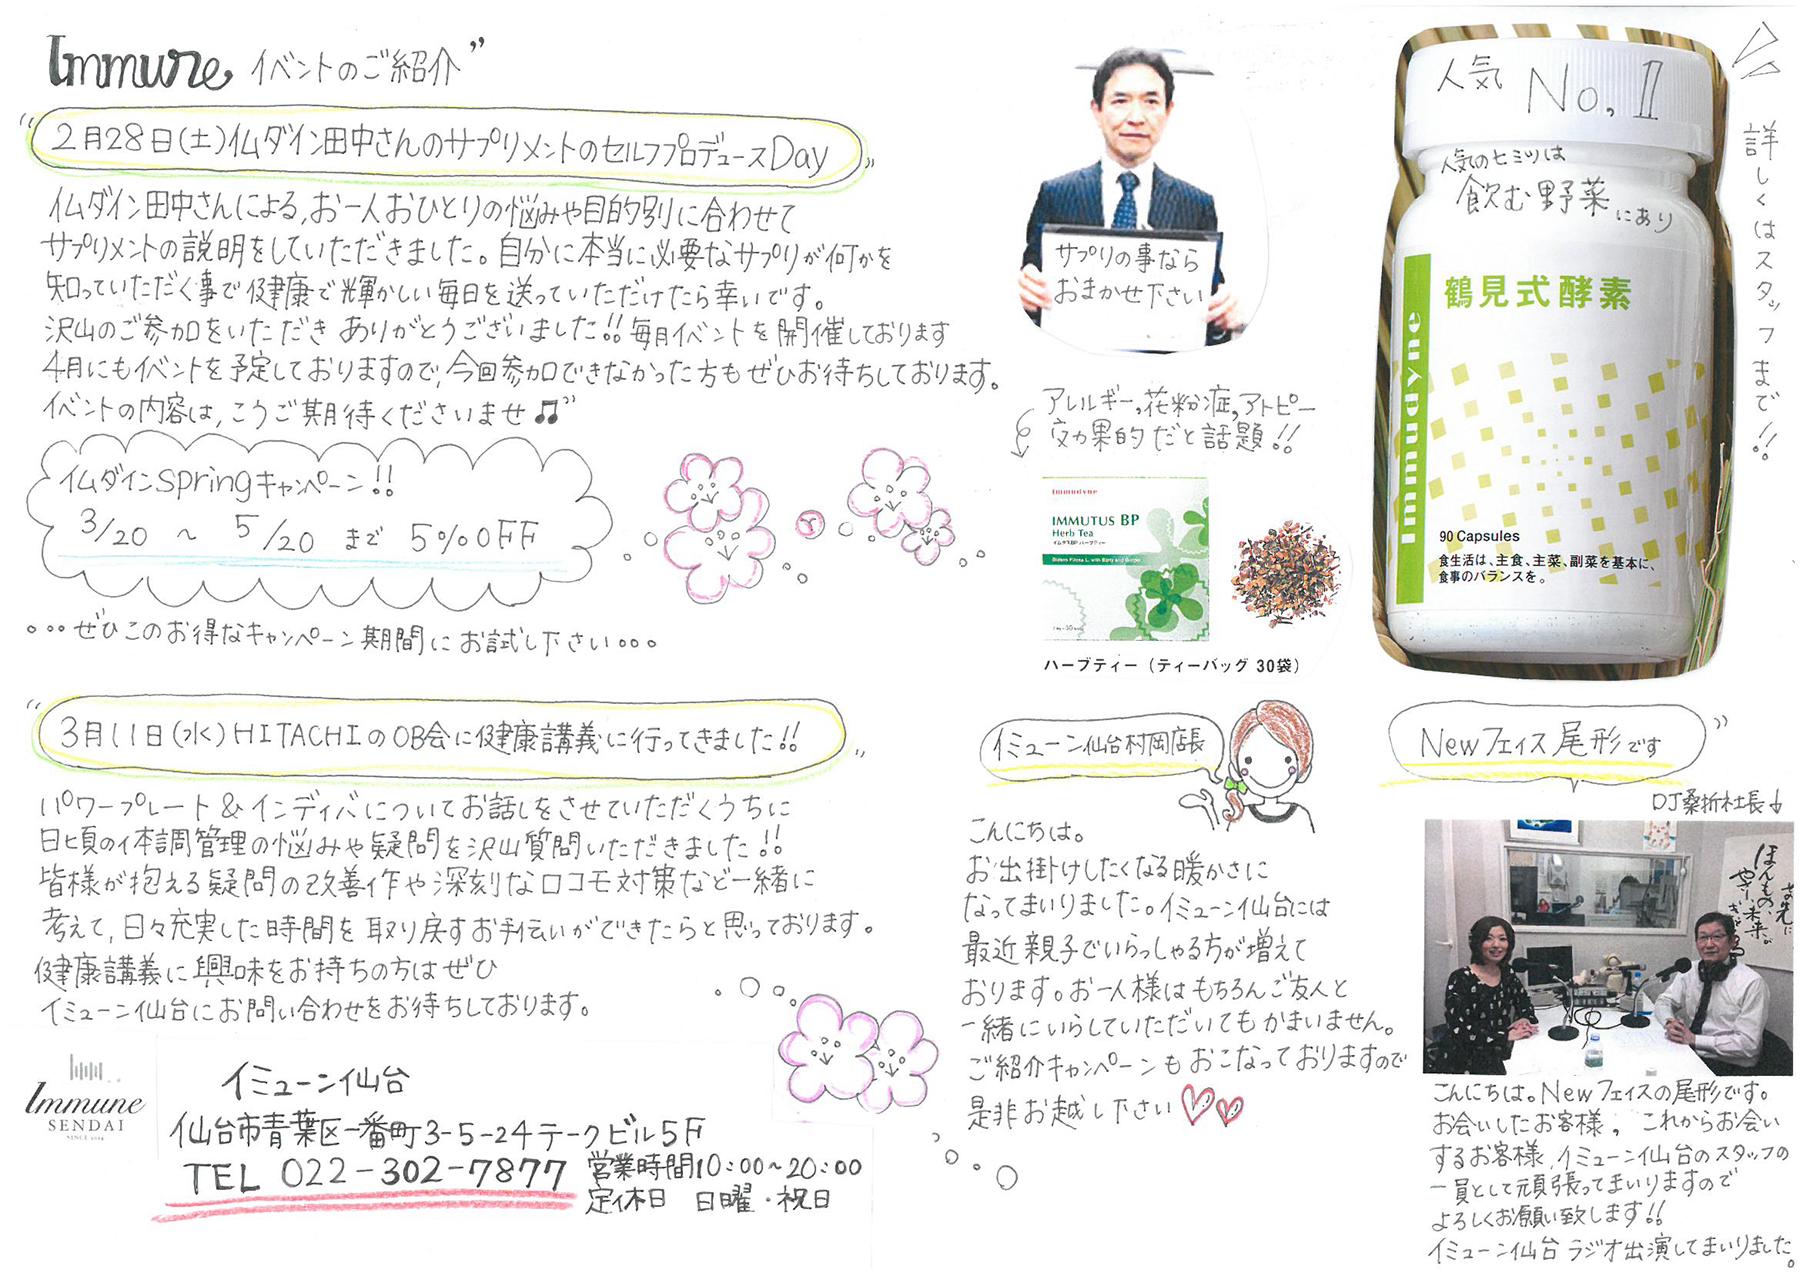 Immure イベントのご紹介"
2月28日(土)イムダイン田中さんのサプリメントのセルフプロデュースDay
イムダイン田中さんによる,お一人おひとりの悩みや目的別に合わせて
サプリメントの説明をしていただきました。自分に本当に必要なサプリが何かを
知っていただく事で健康で輝かしい毎日を送っていただけたら幸いです。
沢山のご参加をいただき ありがとうございました!!毎月イベントを開催しております
4月にもイベントを予定しておりますので,今回参加できなかった方もぜひお待ちしております。
イベントの内容は,こうご期待くださいませ♫"
イムダインspringキャンペーン!!
3/20 ~ 5/20 まで 5%OFF
...ぜひこのお得なキャンペーン期間にお試し下さい...
3月11日(水)HITACHIのOB会に健康講義に行ってきました!!
パワープレート&インディバについてお話しをさせていただくうちに
日頃の体調管理の悩みや疑問を沢山質問いただきました!!
皆様が抱える疑問の改善作や深刻なロコモ対策など一緒に
考えて,日々充実した時間を取り戻すお手伝いができたらと思っております。
健康講義に興味をお持ちの方はぜひ
イミューン仙台にお問い合わせをお待ちしております。
Immune
SENDAI
SINCE 2014
イミューン仙台
仙台市青葉区一番町3-5-24テークビル5F
TEL 022-302-7877
営業時間10:00~20:00
定休日 日曜・祝日
サプリの事なら
おまかせ下さい
アレルギー,花粉症,アトピー
効果的だと話題!!
Immudyne
IMMUTUS BP
Herb Tea
イムタスBP ハーブティー
ハーブティー(ティーバッグ 30袋)
人気 No,1
人気のヒミツは
飲む野菜にあり
鶴見式酵素
Immudyne
90 Capsules
食生活は、主食、主菜、副菜を基本に、
食事のバランスを。
詳しくはスタッフまで!!
イミューン仙台村岡店長
こんにちは。
お出掛けしたくなる暖かさに
なってまいりました。イミューン仙台には
最近親子でいらっしゃる方が増えて
おります。お一人様はもちろんご友人と
一緒にいらしていただいてもかまいません。
ご紹介キャンペーンもおこなっておりますので
是非お越し下さい
Newフェイス 尾形です
DJ桑折社長↓
こんにちは。Newフェイスの尾形です。
お会いしたお客様,これからお会い
するお客様,イミューン仙台のスタッフの
一員として頑張ってまいりますので
よろしくお願い致します!!
イミューン仙台 ラジオ出演してまいりました。